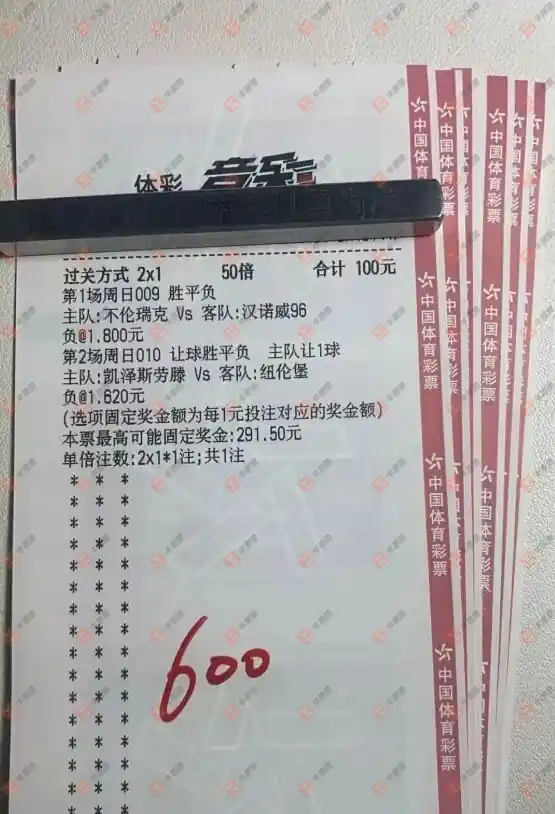 体彩 竞彩
过关方式 2x1 50倍 合计 100元
第1场周日009 胜平负
主队:不伦瑞克 Vs 客队:汉诺威96
负@1.800元
第2场周日010 让球胜平负 主队让1球
主队:凯泽斯劳滕 Vs 客队:纽伦堡
负@1.620元
(选项固定奖金额为每1元投注对应的奖金额)
本票最高可能固定奖金:291.50元
单倍注数:2x1*1注;共1注
* * *
* * *
* * *
* * *
* * *
* * *
* * *
* * *
* * *
* * *
* * *
* * *
* * *
* * *
* * *
* * *
600
中国体育彩票
中国体育彩票
中国体育彩票
中国体育彩票